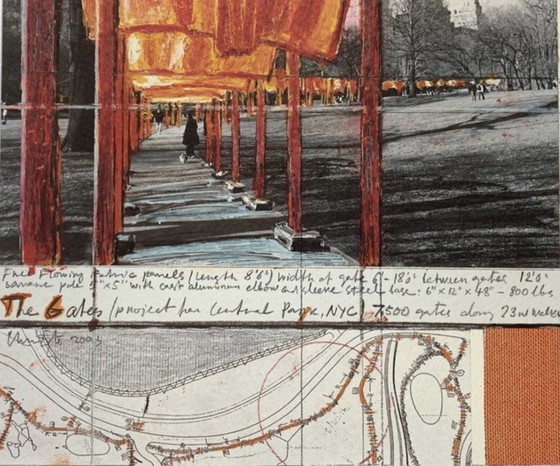 Free Flowing Fabric panels (Length 8'6") width of gate 6'-18'0" between gates 12'0"
square pole 5"x5" with cast aluminum elbow and sleeve steel base: 6"x12"x48" - 800 lbs
The Gates (project for Central Park, NYC) 7,500 gates along 23 w
Christo 2003